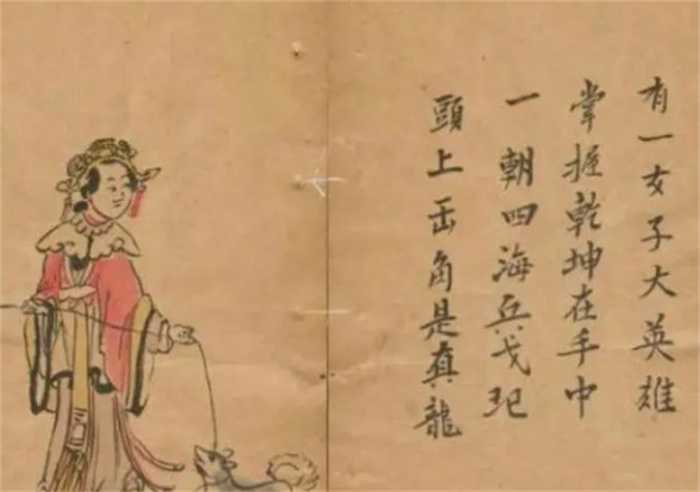 有一女子大英雄
掌握乾坤在手中
一朝四海兵戈犯
頭上缶角是真龍